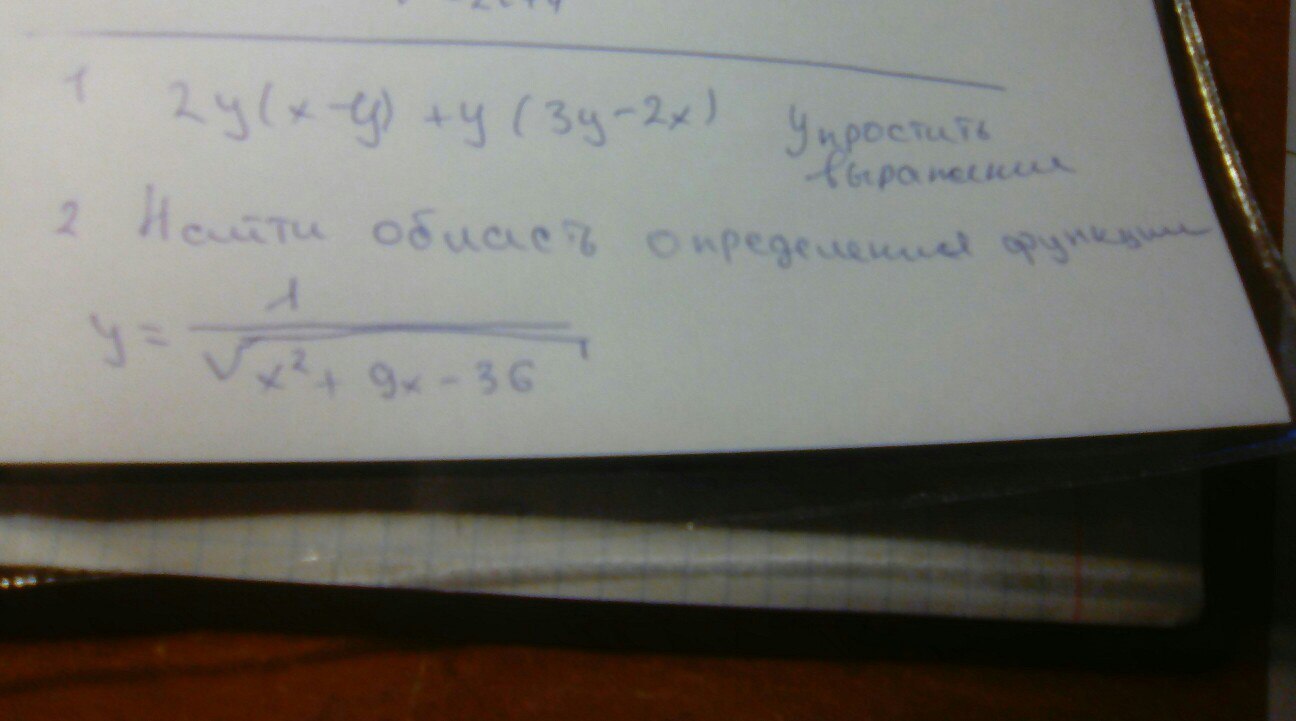 1 2y(x-y) + y(3y-2x) Упростить
выражения
2 Найти область определения функции
y = 1
√x²+ 9x - 36